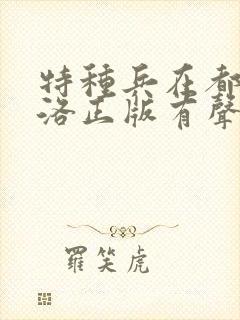 特種兵在都
洛正版有聲
羅笑虎